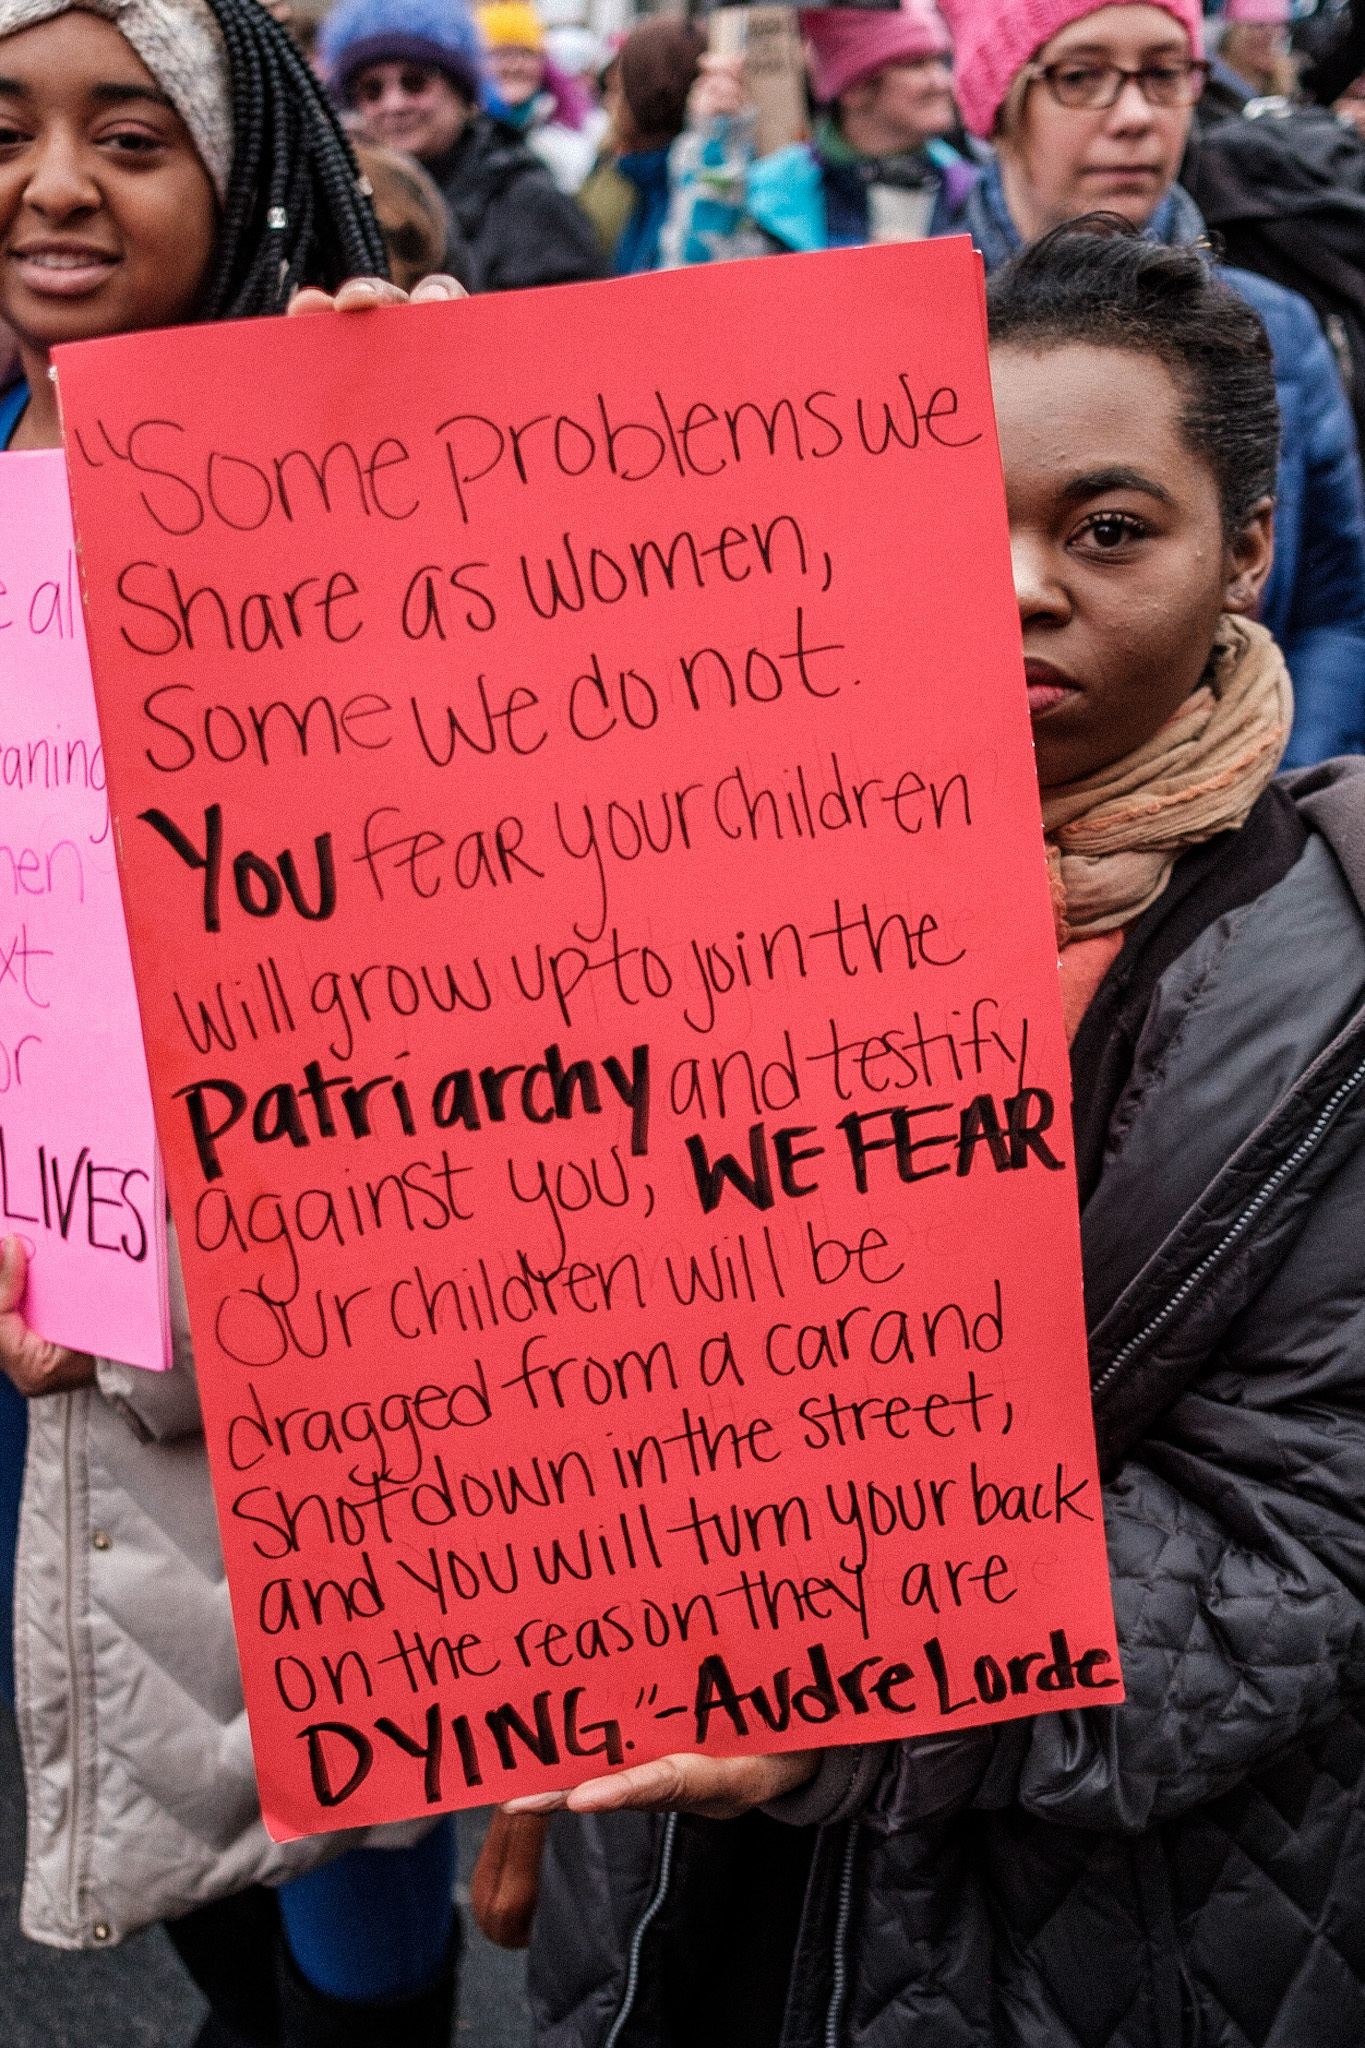 "Some problems we
Share as women,
Some we do not.
You fear your children
will grow up to join the
Patriarchy and testify
against you, WE FEAR
our children will be
dragged from a car and
Shot down in the street,
and you will turn your back
on the reason they are
DYING."-Audre Lorde
LIVES